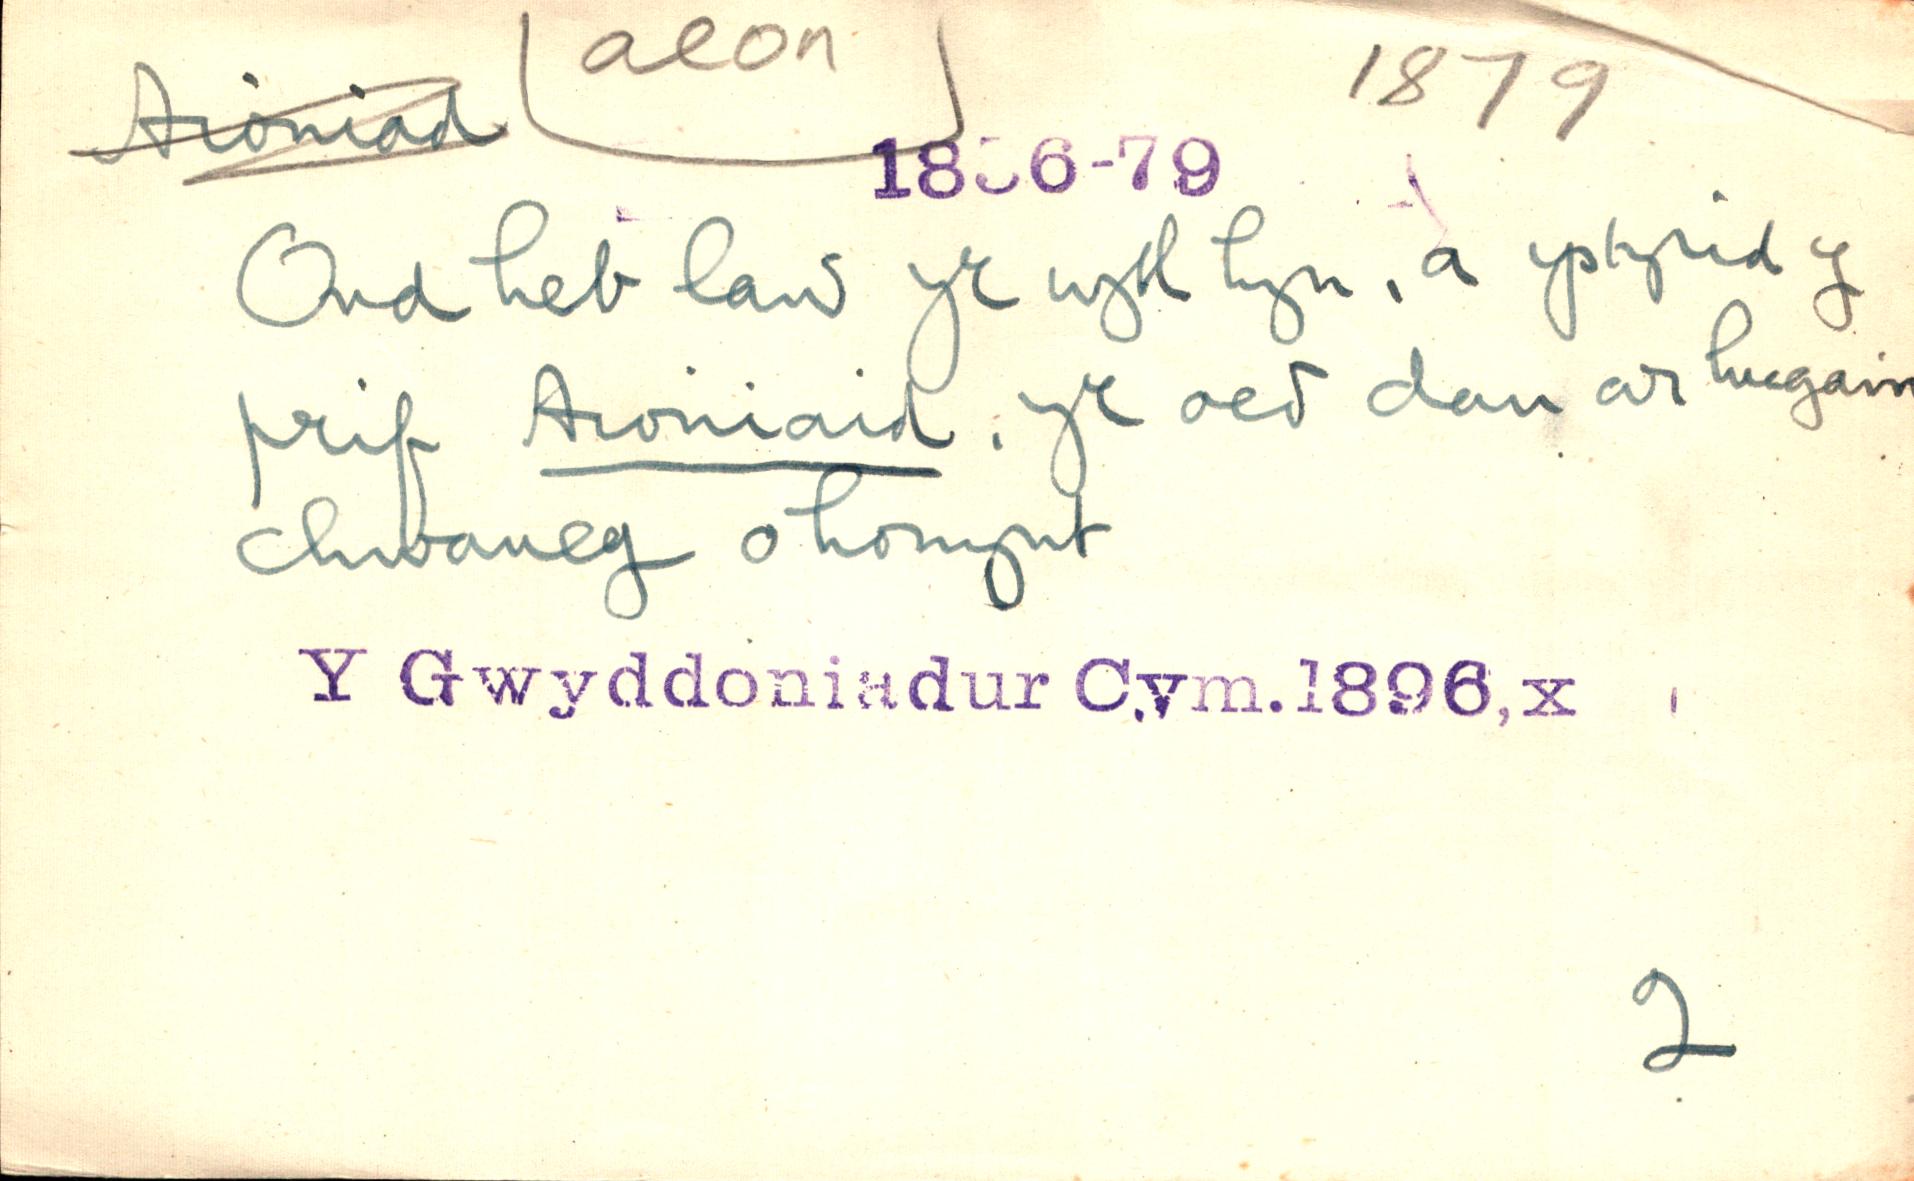 aeon
1879
Aioniad
1856-79
Ond heb law yr wyth hyn, a ystyrid y
prif Aioniaid, yr oeδ dau ar hugain
chwaneg ohonynt
Y Gwyddoniadur Cym. 1896, x
2